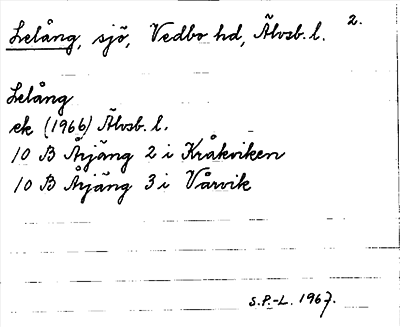 Lelång, sjö, Vedbo hd, Älvsb. l. 2.
Lelång
ek (1966) Älvsb. l.
10 B Årjäng 2 i Kråkviken
10 B Årjäng 3 i Vårvik
S.P.-L. 1967.